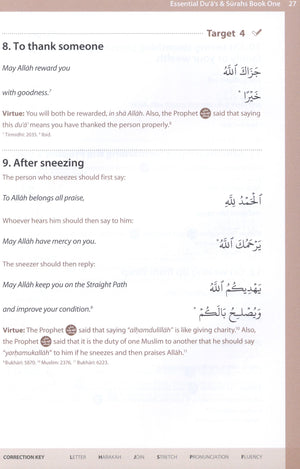 Essential Du'ā's & Sūrahs Book One 27
Target 4
8. To thank someone
May Allāh reward you جَزَاكَ ٱللَّهُ
with goodness.⁷ خَيْرًا
Virtue: You will both be rewarded, in shā Allāh. Also, the Prophet ﷺ said that saying
this du'ā' means you have thanked the person properly.⁸
⁷ Tirmidhi: 2035. ⁸ Ibid.
9. After sneezing
The person who sneezes should first say:
To Allāh belongs all praise, ٱلْحَمْدُ لِلَّهِ
Whoever hears him should then say to him:
May Allāh have mercy on you. يَرْحَمُكَ ٱللَّهُ
The sneezer should then reply:
May Allāh keep you on the Straight Path يَهْدِيكُمُ ٱللَّهُ
and improve your condition.⁹ وَيُصْلِحُ بَالَكُمْ
Virtue: The Prophet ﷺ said that saying "alḥamdulillāh" is like giving charity.¹⁰ Also,
the Prophet ﷺ said that it is the duty of one Muslim to another that he should say
"yarḥamukallāh" to him if he sneezes and then praises Allāh.¹¹
CORRECTION KEY LETTER HARAKAH JOIN STRETCH PRONUNCIATION FLUENCY